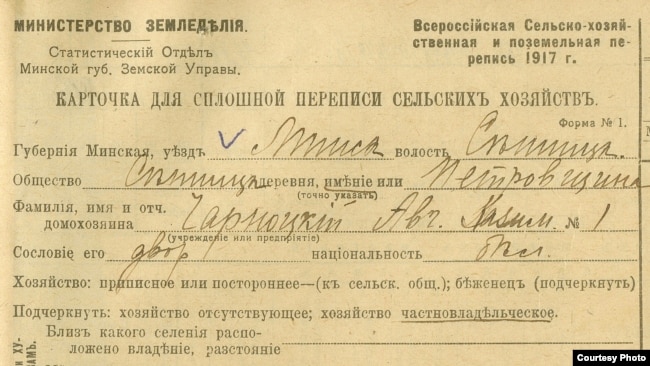 МИНИСТЕРСТВО ЗЕМЛЕДѢЛІЯ.
Статистическій Отдѣлъ
Минской губ. Земской Управы.
Всероссійская Сельско-хозяй-
ственная и поземельная пе-
репись 1917 г.
КАРТОЧКА ДЛЯ СПЛОШНОЙ ПЕРЕПИСИ СЕЛЬСКИХЪ ХОЗЯЙСТВЪ.
Форма № 1.
Губернія Минская, уѣздъ Минск волость Сѣница.
Общество Сѣница деревня, имѣніе или Петровщина
(точно указать)
Фамилія, имя и отч. домохозяина Чарноцкій Ав. Казим. № 1
(учрежденіе или предпріятіе)
Сословіе его двор національность Бѣл.
Хозяйство: приписное или постороннее—(къ сельск. общ.); бѣженец (подчеркнуть)
Подчеркнуть: хозяйство отсутствующее; хозяйство частновладѣльческое.
Близъ какого селенія распо-
ложено владѣніе, разстояніе
Courtesy Photo